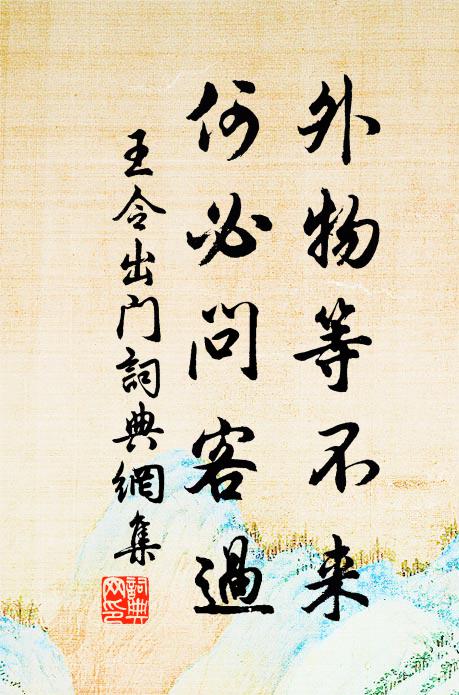 外物等不来
何必问客过
王令出门詞典網集
詞典